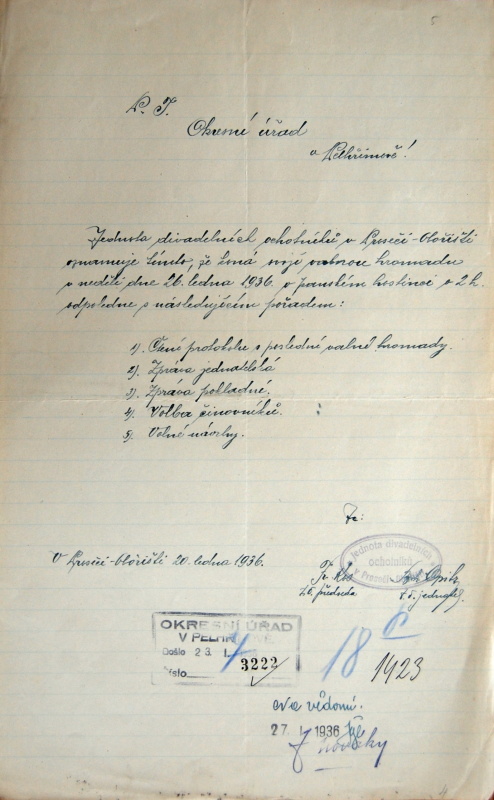 5
P. T.
Okresní úřad
v Pelhřimově!
Jednota divadelních ochotníků v Proseči-Obořišti
oznamuje tímto, že koná svojí valnou hromadu
v neděli dne 26. ledna 1936 v panském hostinci o 2 h.
odpoledne s následujícím pořadem:
1). Čtení protokolu z poslední valné hromady.
2). Zpráva jednatelská
3). Zpráva pokladní.
4). Volba činovníků.
5). Volné návrhy.
Za:
V Proseči-Obořišti 20. ledna 1936.
Jednota divadelních
ochotníků
v Proseči
t. č. předseda
t. č. jednatel.
OKRESNÍ ÚŘAD
V PELHŘIMOVĚ
Došlo 23. I.
Číslo 3222
18
1923
Na vědomí.
27. I. 1936
Novotny